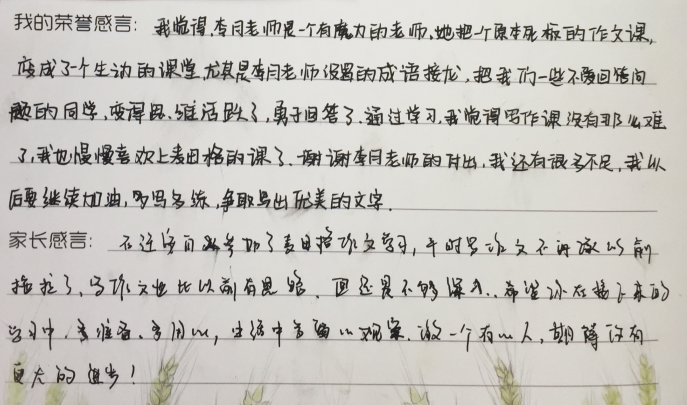 我的荣誉感言：我觉得,李月老师是一个有魔力的老师,她把一个原本死板的作文课,
变成了一个生动的课堂,尤其是李月老师设置的成语接龙,把我们一些不爱回答问
题的同学,变得思维活跃了,勇于回答了.通过学习,我觉得写作课没有那么难
了,我也慢慢喜欢上麦田格的课了.谢谢李月老师的付出,我还有很多不足,我以
后要继续加油,多写多练,争取写出优美的文字.
家长感言：不连度参加了麦田格作文学习,平时写作文不再像以前
拖拉了,写作文也比以前有思路.但还是不够深入.希望你在接下来的
学习中,多准备、多用心,生活中多留心观察.做一个有心人,期待你有
更大的进步！